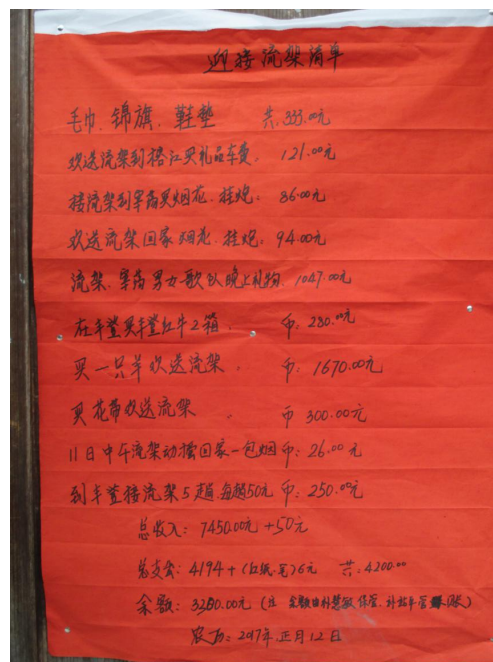 迎接流架清单
毛巾、锦旗、鞋垫 共:333.00元
欢送流架到榕江买礼品车费: 121.00元
接流架到宰荡买烟花、挂炮: 86.00元
欢送流架回家烟花、挂炮: 94.00元
流架、宰荡男女歌队晚上礼物 1047.00元
在丰登买丰登红牛2箱, 币:280.00元
买一只羊欢送流架, 币:1670.00元
买花带欢送流架, 币 300.00元
11日中午流架 回家一包烟 币:26.00元
到丰登接流架5趟,每趟50元 币:250.00元
总收入: 7450.00元+50元
总支出: 4194+(红纸、笔)6元 共:4200.00
余额: 3250.00元 (注 余额由 保管、
农历:2017年正月12日